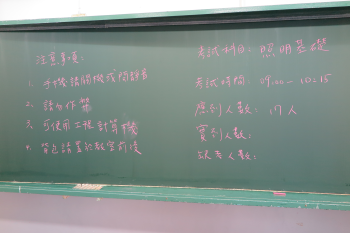 注意事項：
1. 手機請關機或調靜音
2. 請勿作弊
3. 可使用工程計算機
4. 背包請置於教室前後
考試科目：照明基礎
考試時間：09:00～10:15
應到人數：17人
實到人數：
缺考人數：